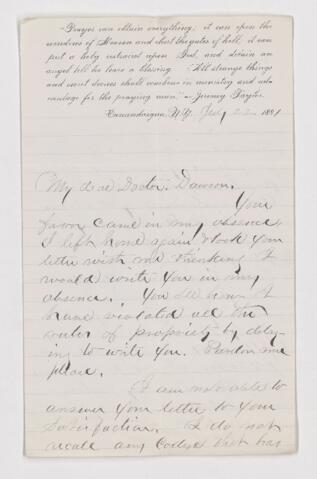 "Prayer can obtain everything; it can open the
windows of Heaven and shut the gates of hell, it can
put a holy restraint upon God, and detain an
angel till he leave a blessing. * * All strange things
and secret decrees shall combine in ministry and ad-
vantage for the praying man."—Jeremy Taylor.
Canandaigua, N.Y. July 22 1891
My dear Doctor. Dawson.
Your
favor came in my absence
I left home again & took your
letter with me thinking I
would write you in my
absence. You see how I
have violated all the
rules of propriety by delay-
ing to write you. Pardon me
please.
I am not able to
answer your letter to your
Satisfaction. I do not
recall any that has